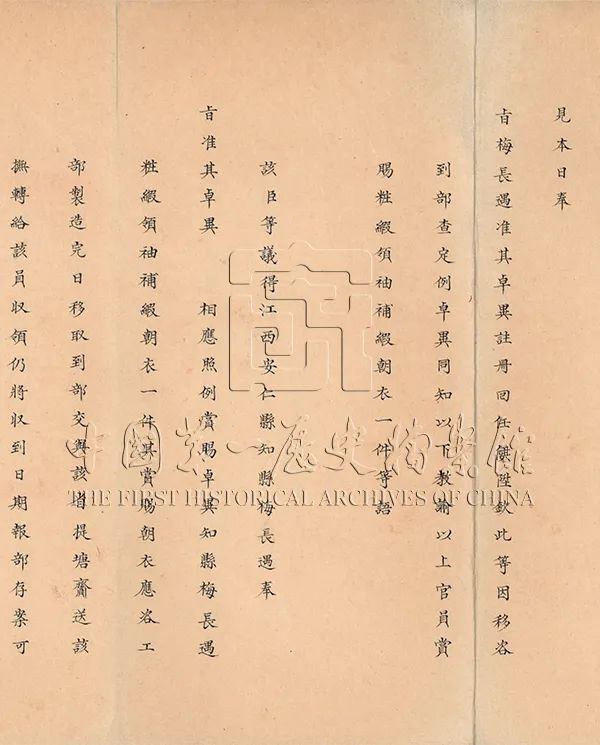 見本日奉
旨梅長遇准其卓異註冊回任候陞欽此等因移咨
到部查定例卓異同知以下教諭以上官員賞
賜粧緞領袖補緞朝衣一件等語
該臣等議得江西安仁縣知縣梅長遇奉
旨准其卓異 相應照例賞賜卓異知縣梅長遇
粧緞領袖補緞朝衣一件其賞賜朝衣應咨工
部製造完日移取到部交與該省提塘齎送該
撫轉給該員収領仍將収到日期報部存案可
中国第一歷史档案館
THE FIRST HISTORICAL ARCHIVES OF CHINA